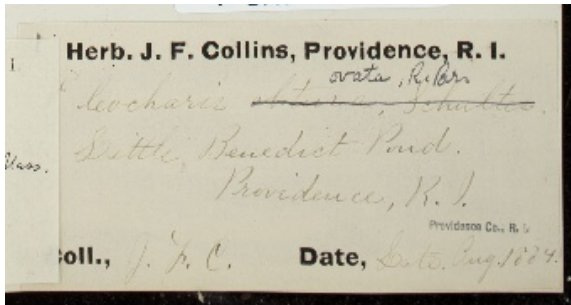 Herb. J. F. Collins, Providence, R. I.
ovata, R. Br.
Eleocharis obtusa, Schultes.
Little Benedict Pond.
Providence, R. I.
Providence Co., R. I.
Coll., J. F. C. Date, Late Aug. 1884.
Mass.